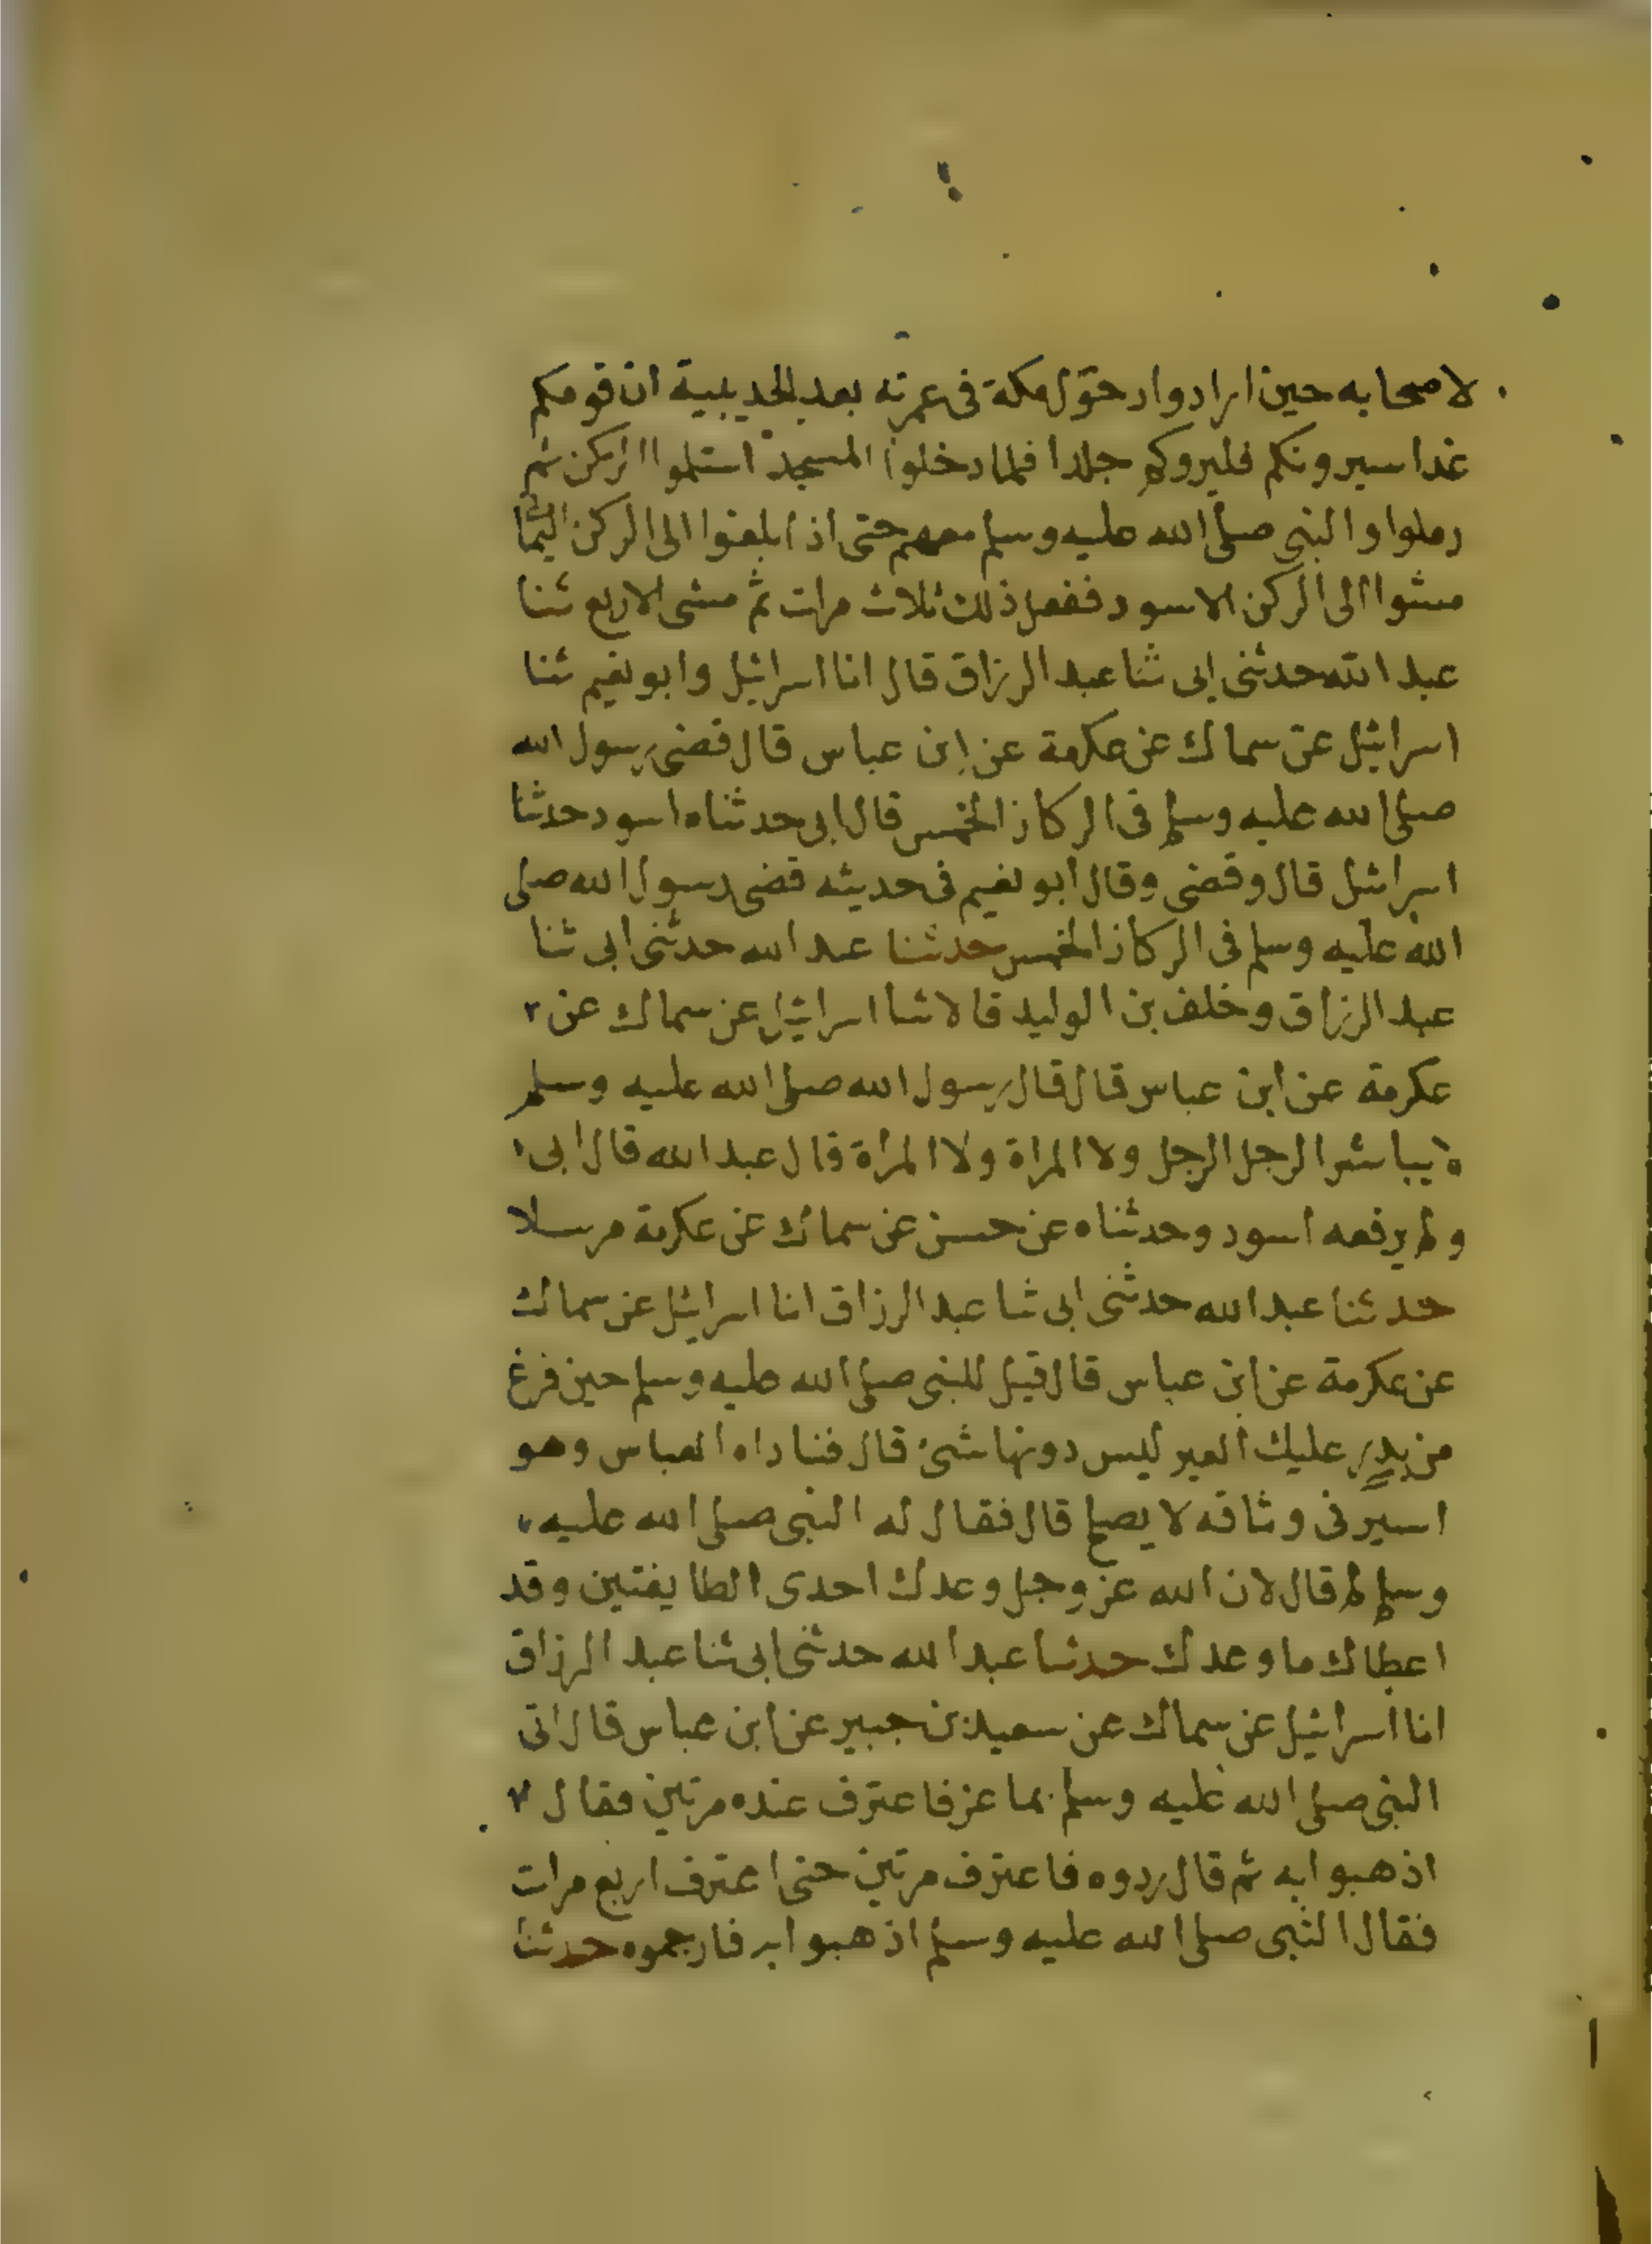 لاصحابه حين ارادوا دخول مكة فى عمرته بعد الحديبية ان قومكم
غدا سيرونكم فليروكم جلدا فلما دخلوا المسجد استلموا الركن ثم
رملوا والنبي صلى الله عليه وسلم معهم حتى اذا بلغوا الى الركن اليمانى
مشوا الى الركن الاسود ففعل ذلك ثلاث مرات ثم مشى الاربع ثنا
عبد الله حدثنى ابى ثنا عبد الرزاق قال انا اسرائيل وابو نعيم ثنا
اسرائيل عن سماك عن عكرمة عن ابن عباس قال قضى رسول الله
صلى الله عليه وسلم فى الركاز الخمس قال ابى حدثناه اسود حدثنا
اسرائيل قال وقضى وقال ابو نعيم فى حديثه قضى رسول الله صلى
الله عليه وسلم فى الركاز الخمس حدثنا عبد الله حدثنى ابى ثنا
عبد الرزاق وخلف بن الوليد قالا ثنا اسرائيل عن سماك عن
عكرمة عن ابن عباس قال قال رسول الله صلى الله عليه وسلم
لا يباشر الرجل الرجل ولا المراة ولا المرأة قال عبد الله قال ابى
ولم يرفعه اسود وحدثناه عن حسن عن سماك عن عكرمة مرسلا
حدثنا عبد الله حدثنى ابى ثنا عبد الرزاق انا اسرائيل عن سماك
عن عكرمة عن ابن عباس قال قيل للنبى صلى الله عليه وسلم حين فرغ
من بدر عليك العير ليس دونها شئ قال فناداه العباس وهو
اسير فى وثاقه لا يصلح قال فقال له النبى صلى الله عليه
وسلم لم قال لان الله عز وجل وعدك احدى الطايفتين وقد
اعطاك ما وعدك حدثنا عبد الله حدثنى ابى ثنا عبد الرزاق
انا اسرائيل عن سماك عن سعيد بن جبير عن ابن عباس قال اتى
النبى صلى الله عليه وسلم بماعز فاعترف عنده مرتين فقال
اذهبوا به ثم قال ردوه فاعترف مرتين حتى اعترف اربع مرات
فقال النبى صلى الله عليه وسلم اذهبوا به فارجموه حدثنا